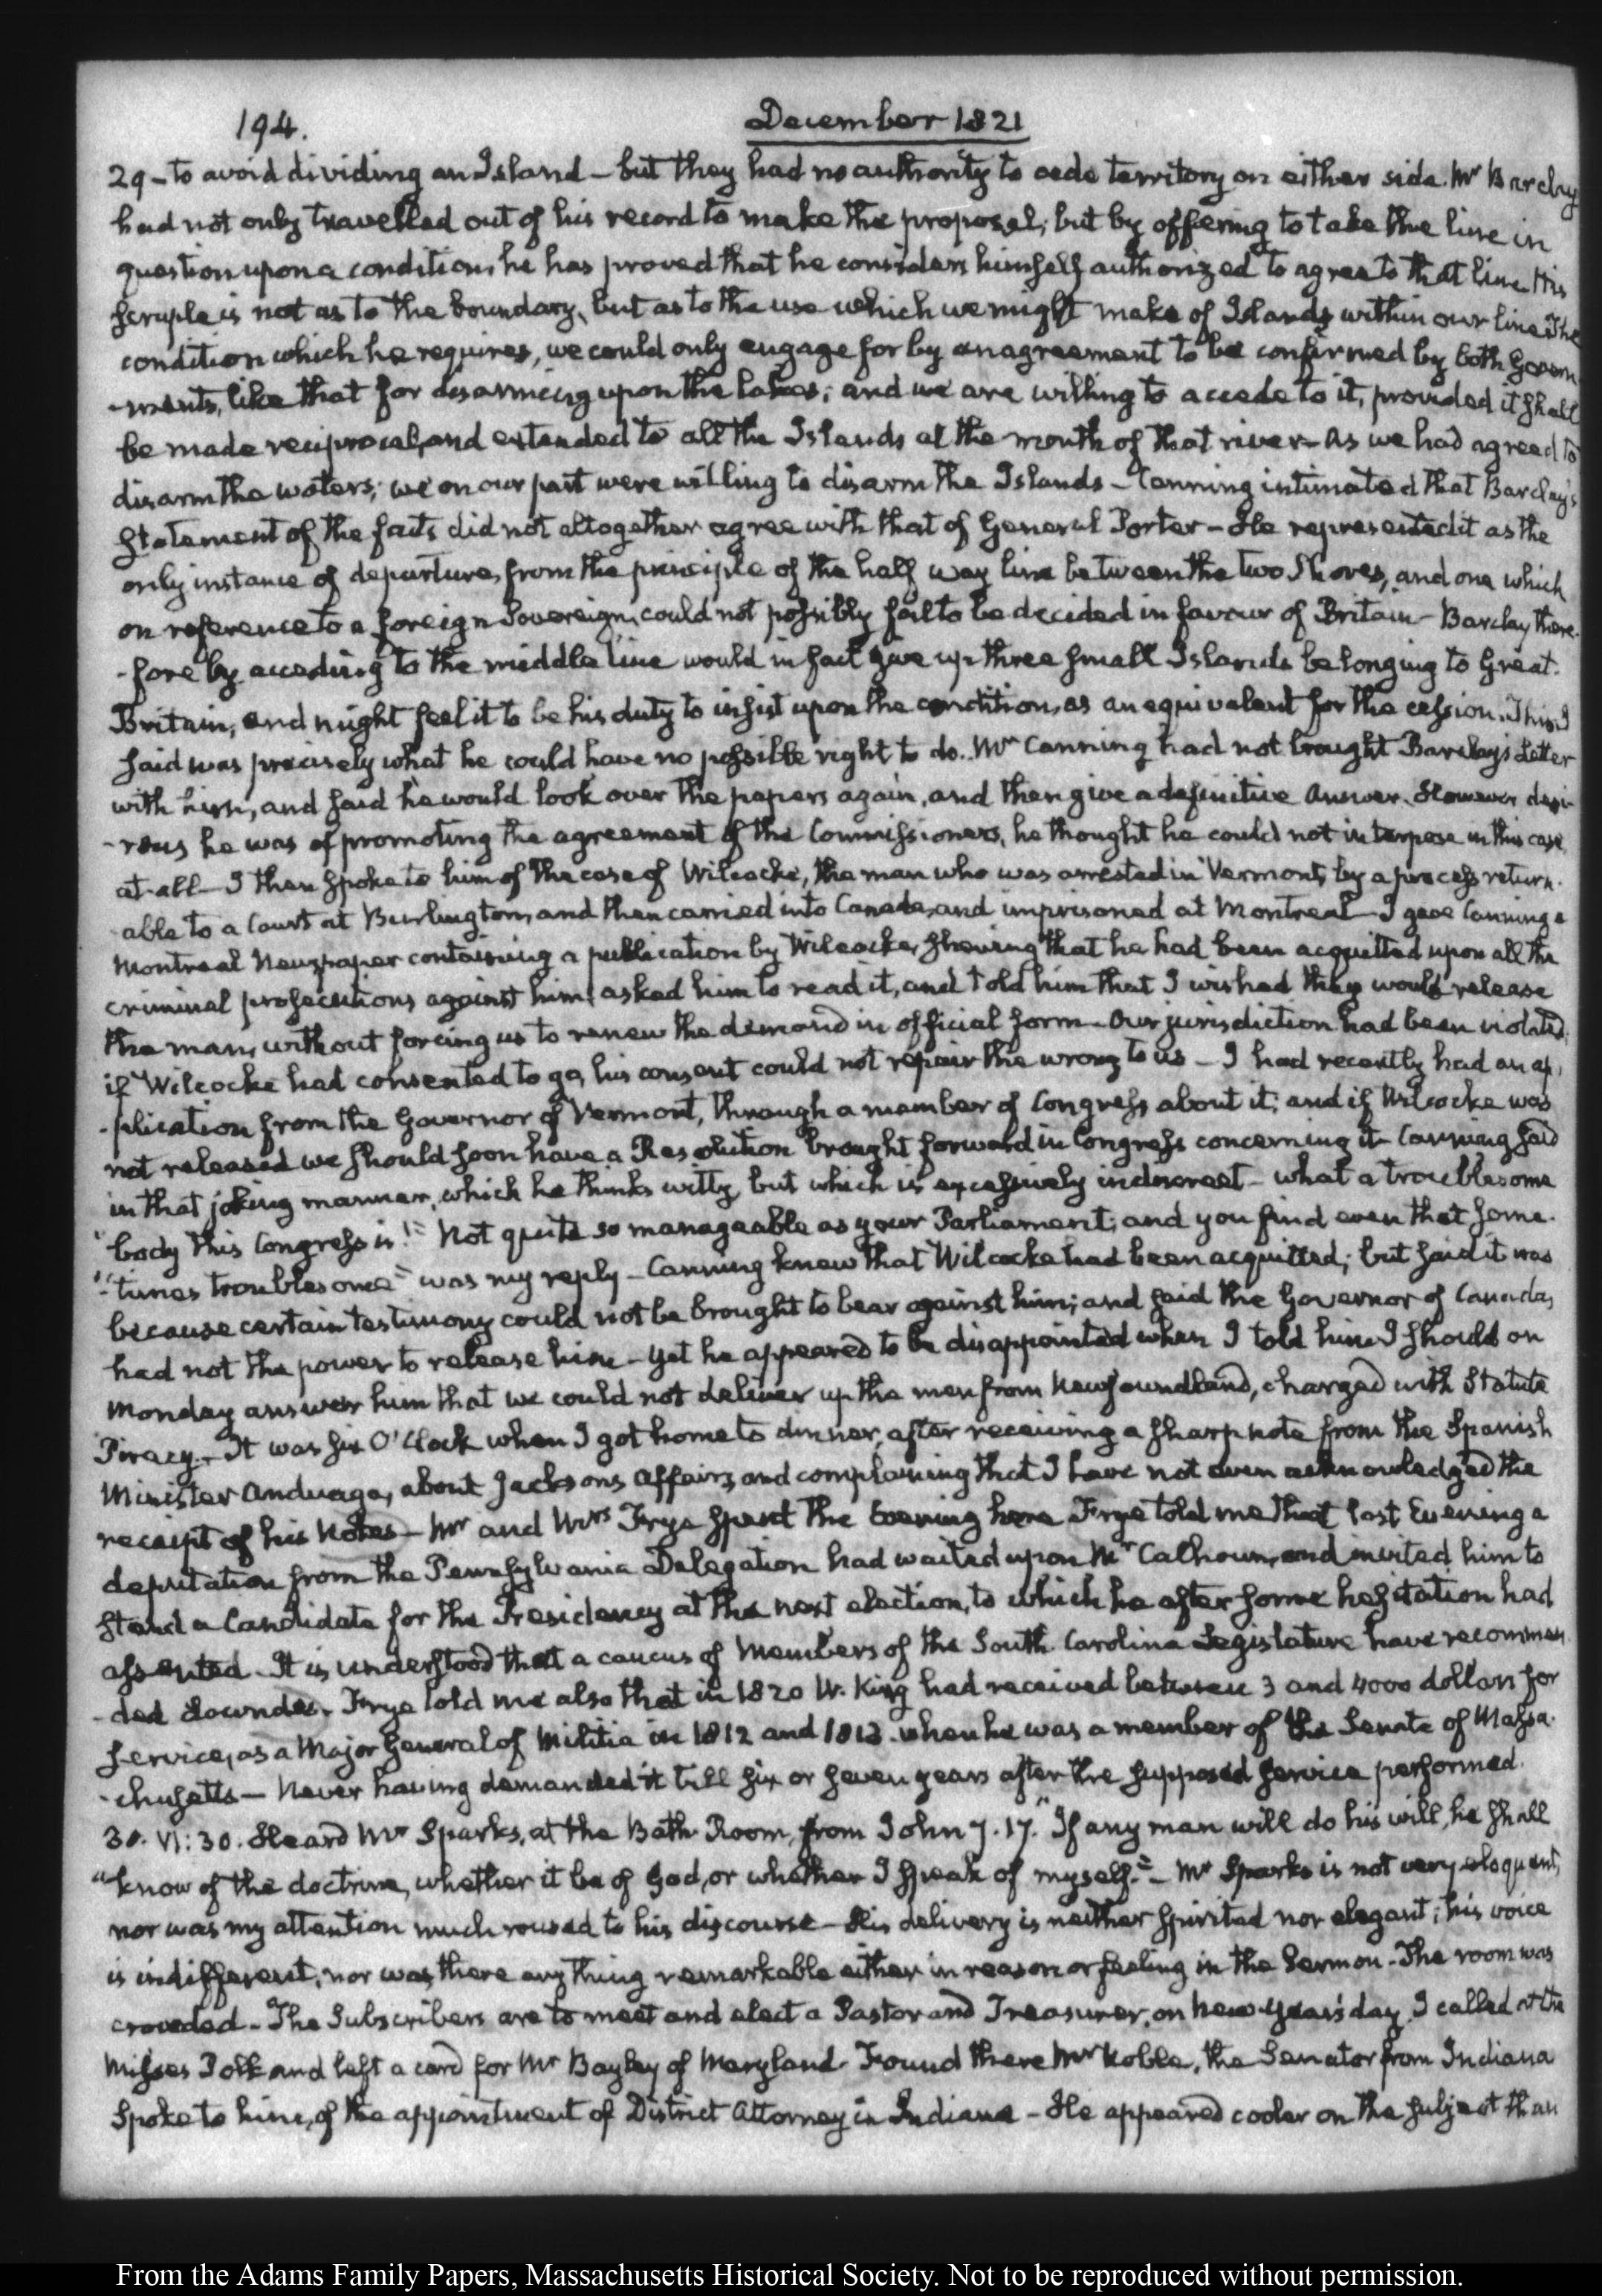 194.
December 1821
29 - to avoid dividing an Island - but they had no authority to cede territory on either side. Mr Barclay
had not only travelled out of his record to make the proposal; but by offering to take the line in
question upon a condition, he has proved that he considers himself authorized to agree to that line. His
scruple is not as to the boundary, but as to the use which we might make of Islands within our line. The
condition which he requires, we could only engage for by an agreement to be confirmed by both Govern
-ments, like that for disarming upon the lakes; and we are willing to accede to it, provided it shall
be made reciprocal, and extended to all the Islands at the mouth of that river - As we had agreed to
disarm the waters; we on our part were willing to disarm the Islands - Canning intimated that Barclay's
Statement of the facts did not altogether agree with that of General Porter - He represented it as the
only instance of departure, from the principle of the half way line between the two Shores, and one which
on reference to a foreign Sovereign, could not possibly fail to be decided in favour of Britain - Barclay there-
-fore by acceding to the middle line would in fact give up three small Islands belonging to Great-
Britain, and might feel it to be his duty to insist upon the condition, as an equivalent for the cession. This I
said was precisely what he could have no possible right to do.. Mr Canning had not brought Barclay's Letter
with him, and said he would look over the papers again, and then give a definitive answer. However desi-
-rous he was of promoting the agreement of the Commissioners, he thought he could not interpose in this case
at all - I then spoke to him of the case of Wilcocke, the man who was arrested in Vermont, by a process return-
-able to a Court at Burlington, and then carried into Canada, and imprisoned at Montreal - I gave Canning a
Montreal Newspaper containing a publication by Wilcocke, shewing that he had been acquitted upon all the
criminal prosecutions against him; asked him to read it, and told him that I wished they would release
the man, without forcing us to renew the demand in official form - Our jurisdiction had been violated,
if Wilcocke had consented to go, his consent could not repair the wrong to us - I had recently had an ap-
-plication from the Governor of Vermont, through a member of Congress about it; and if Wilcocke was
not released we should soon have a Resolution brought forward in Congress concerning it - Canning said
in that joking manner, which he thinks witty, but which is excessively indiscreet - what a troublesome
"body this Congress is!" "Not quite so manageable as your Parliament; and you find even that some-
"-times troublesome" was my reply - Canning knew that Wilcocke had been acquitted; but said it was
because certain testimony could not be brought to bear against him; and said the Governor of Canada,
had not the power to release him - yet he appeared to be disappointed when I told him I should on
Monday answer him that we could not deliver up the men from Newfoundland, charged with Statute
Piracy. - It was six O'Clock when I got home to dinner, after receiving a sharp note from the Spanish
Minister Anduaga, about Jacksons affairs, and complaining that I have not even acknowledged the
receipt of his Notes - Mr and Mrs Frye spent the Evening here. Frye told me that last Evening a
deputation from the Pennsylvania Delegation had waited upon Mr Calhoun, and invited him to
stand a Candidate for the Presidency at the next election, to which he after some hesitation had
assented. It is understood that a caucus of Members of the South Carolina Legislature have recommen-
-ded Lowndes. Frye told me also that in 1820 W. King had received between 3 and 4000 dollars for
service, as a Major General of Militia in 1812 and 1813. when he was a member of the Senate of Massa-
-chusetts - Never having demanded it till six or seven years after the supposed service performed.
30. VI:30. Heard Mr Sparks, at the Bath Room, from John 7.17. "If any man will do his will, he shall
"know of the doctrine, whether it be of God, or whether I speak of myself." - Mr Sparks is not very eloquent,
nor was my attention much roused to his discourse - His delivery is neither spirited nor elegant; his voice
is indifferent, nor was there any thing remarkable either in reason or feeling in the Sermon. - The room was
crowded - The Subscribers are to meet and elect a Pastor and Treasurer, on New-Year's day. I called at the
Misses Polk and left a card for Mr Bayley of Maryland. Found there Mr Noble, the Senator from Indiana
Spoke to him, of the appointment of District Attorney in Indiana - He appeared cooler on the subject than
From the Adams Family Papers, Massachusetts Historical Society. Not to be reproduced without permission.